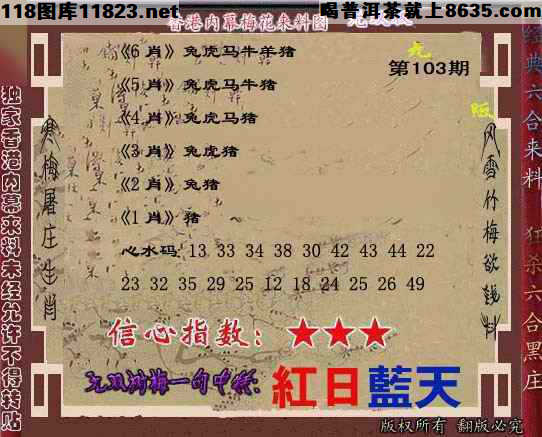 118图库11823.net
喝普洱茶就上8635.com
香港内幕梅花来料图
第103期
《6 肖》兔虎马牛羊猪
《5 肖》兔虎马牛猪
《4 肖》兔虎马猪
《3 肖》兔虎猪
《2 肖》兔猪
《1 肖》猪
心水码: 13 33 34 38 30 42 43 44 22
23 32 35 29 25 12 18 24 25 26 49
信心指数: ★★★
紅日藍天
独家香港内幕来料未经允许不得转贴
寒梅屠庄生肖
经典六合来料
狂杀六合黑庄
版权所有 翻版必究